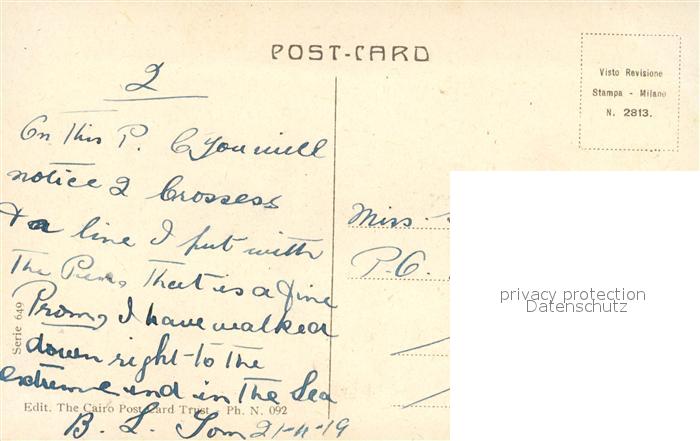 POST-CARD
Visto Revisione
Stampa - Milano
N. 2813.
2
On this P. C you will
notice 2 Crosses
+ a line I put with
The Pen, That is a fine
Prom, I have walked
down right to the
extreme end in The Sea
B. L. Tom 21-11-19
Miss
P.O.
privacy protection
Datenschutz
Serie 649
Edit. The Cairo Postcard Trust Ph. N. 092